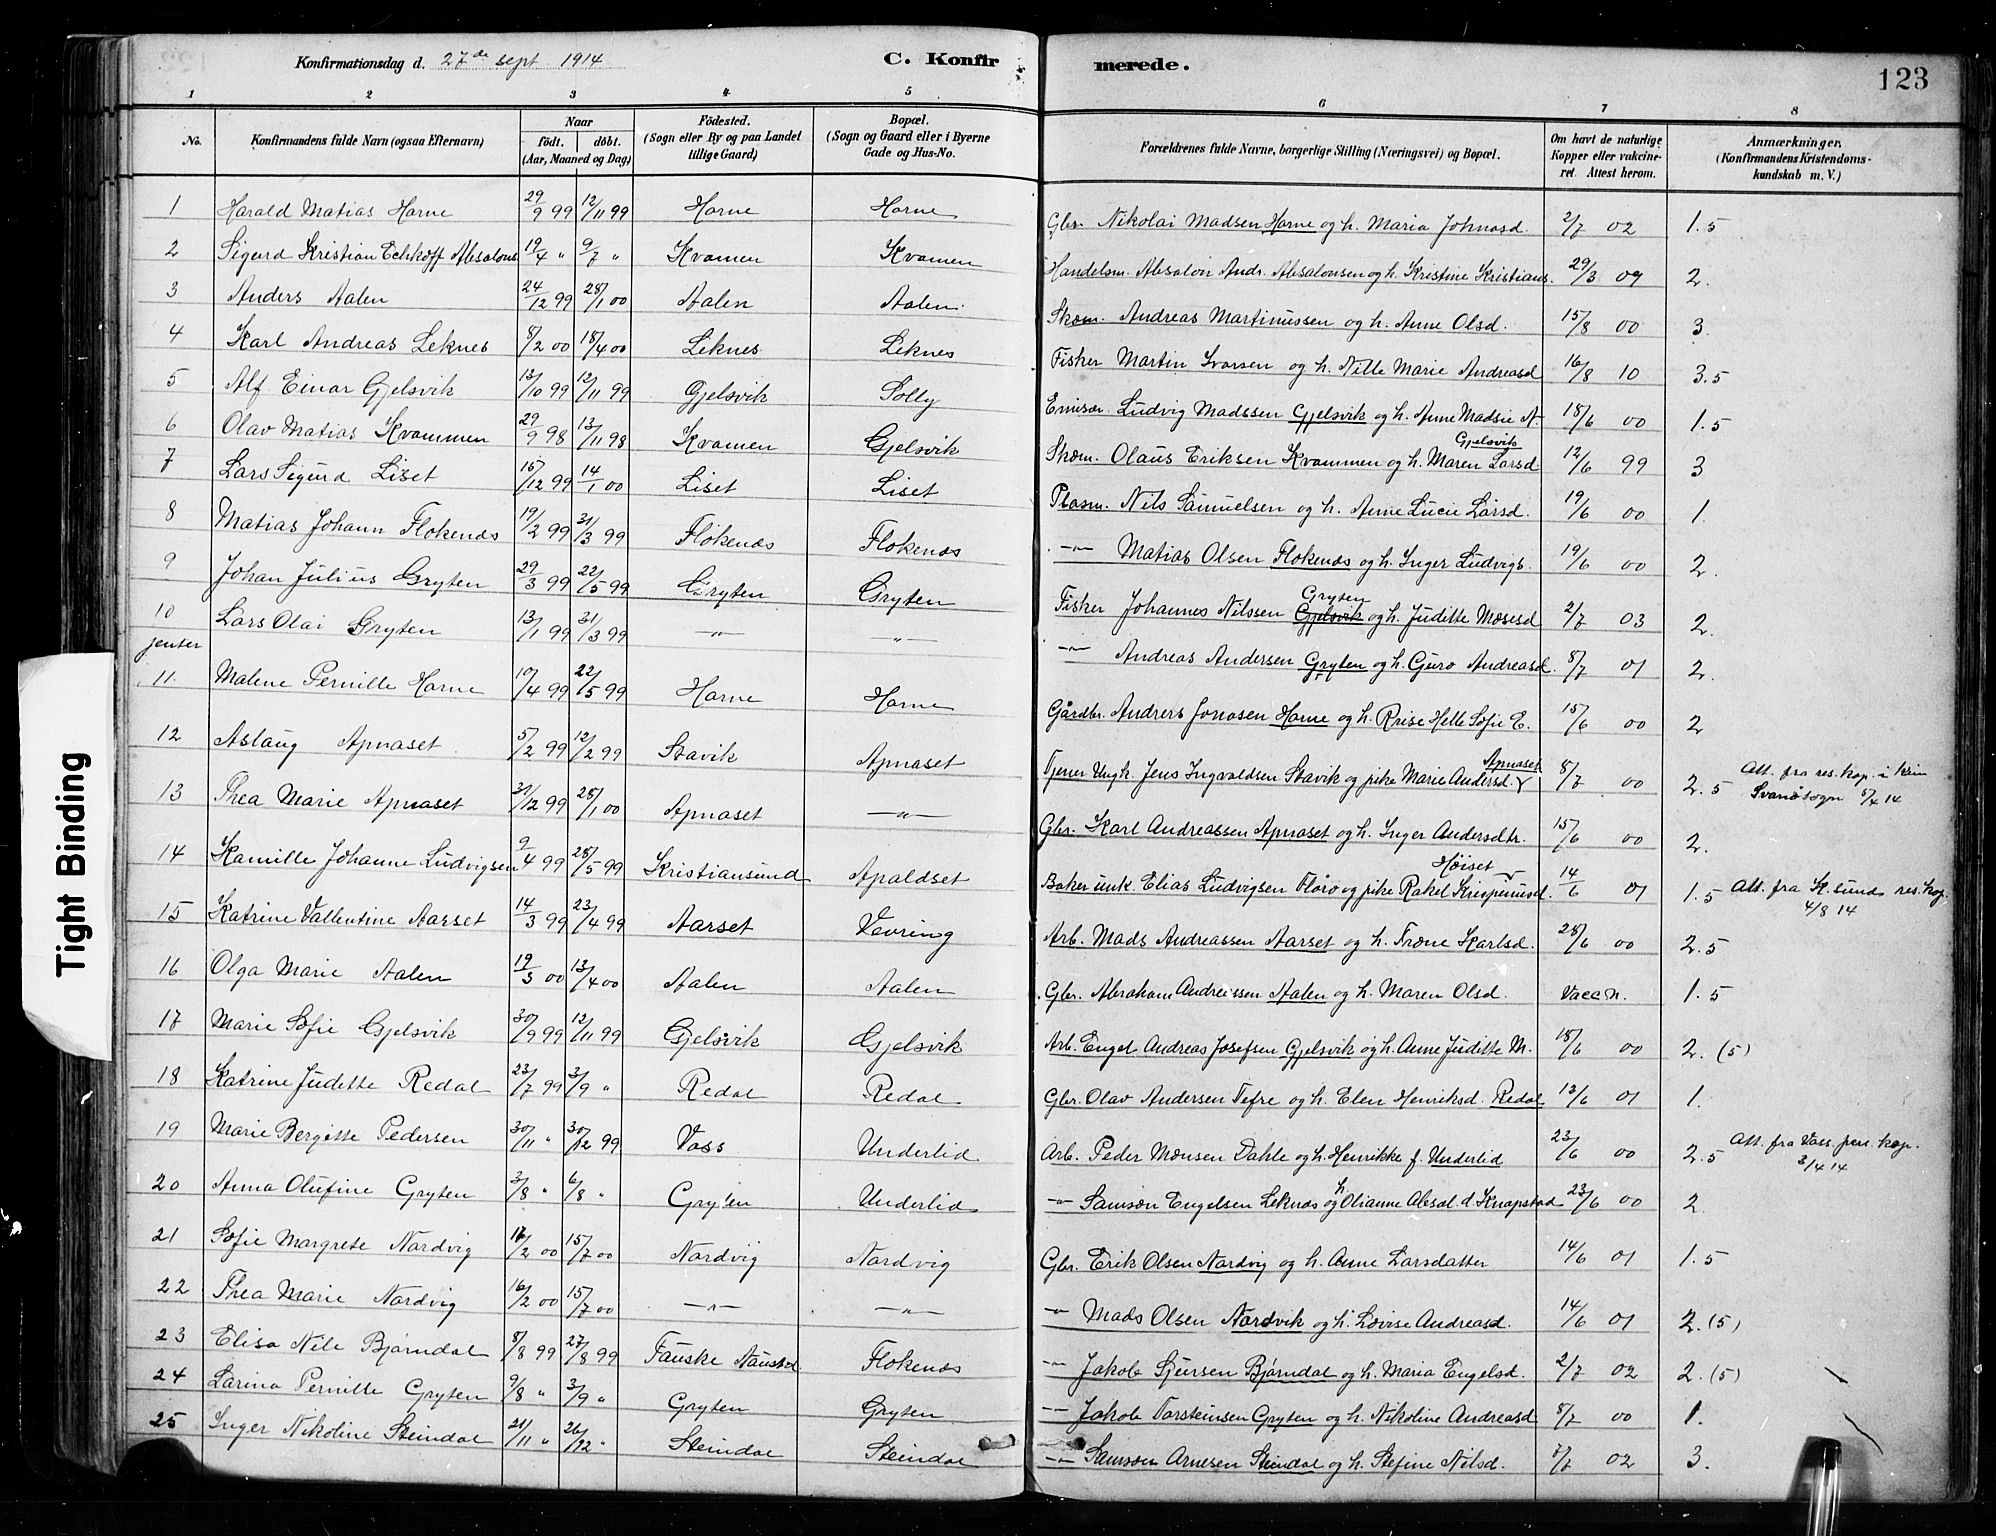 Konfirmationsdag d. 27de sept 1914 C. Konfirmerede. 123
1 2 3 4 5 6 7 8
No. Konfirmandens fulde Navn (ogsaa Efternavn) Naar födt. döbt. (Aar, Maaned og Dag) Födested. (Sogn eller By og paa Landet tillige Gaard) Bopæl. (Sogn og Gaard eller i Byerne Gade og Hus-No. Forældrenes fulde Navne, borgerlige Stilling (Næringsvei) og Bopæl. Om havt de naturlige Kopper eller vakcineret. Attest herom. Anmærkninger, (Konfirmandens Kristendomskundskab m. V.)
1 Harald Matias Horne 29/9 99 12/11 99 Horne Horne Gbr. Nikolai Madsen Horne og h. Maria Johnasd. 2/7 02 1.5
2 Sigurd Kristian Echkoff Absalons 19/4 " 9/7 " Kvamen Kvamen Handelsm. Absalon Andr. Absalonsen og h. Kristine Kristians. 29/3 09 2.
3 Anders Aalen 24/12 99 28/1 00 Aalen Aalen. Skom. Andreas Martinussen og h. Anne Olsd. 15/8 00 3.
4 Karl Andreas Leknes 8/2 00 18/4 00 Leknes Leknes Fisker Martin Ivarsen og h. Nille Marie Andreasd 16/8 10 3.5
5 Alf Einar Gjelsvik 13/10 99 12/11 99 Gjelsvik Solly Emisær. Ludvig Madssen Gjelsvik og h. Anne Madsie N. 18/6 00 1.5
6 Olav Matias Kvammen 29/9 98 13/11 98 Kvamen Gjelsvik Skom. Olaus Eriksen Kvammen og h. Maren Larsd. Gjelsvik 12/6 99 3
7 Lars Sigurd Liset 15/12 99 14/1 00 Liset Liset Plasm. Nils Samuelsen og h. Anne Lucie Larsd. 19/6 00 1.
8 Matias Johann Flokenes 19/2 99 31/3 99 Flokenes Flokenes -"- Matias Olsen Flokenes og h. Inger Ludvigs. 19/6 00 2.
9 Johan Julius Gryten 29/3 99 22/5 99 Gryten Gryten Fisker Johannes Nilssen Gjelsvik Gryten og h. Juditte Mosesd 2/7 03 2.
10 Lars Olai Gryten 13/1 99 31/3 99 -"- -"- -"- Andreas Andersen Gryten og h. Guro Andreasd. 8/7 01 2.
jenter
11. Malene Pernille Horne 10/4 99 22/5 99 Horne Horne Gårdbr. Andrers Jonasen Horne og h. Helle Sofie E. 15/6 00 2
12 Aslaug Apnaset 5/2 99 12/2 99 Stavik Apnaset Tjener Ungk. Jens Ingvaldsen Stavik og pike Marie Andersd. Apnaset 8/7 00 2.5 Att. fra res. kap. i
Svanøsogn 8/4 14
13 Thea Marie Apnaset 31/12 99 28/1 00 Apnaset -"- Gbr. Karl Andreassen Apnaset og h. Inger Andersdtr. 15/6 00 2.
14 Kamille Johanne Ludvigsen 9/4 99 28/5 99 Kristiansund Apaldset Baker unk. Elias Ludvigsen Florø og pike Rakel Krispinusd. Høiset 14/6 01 1.5 Att. fra K.sund res. kap. 4/8 14
15 Katrine Vallentine Aarset 14/3 99 23/4 99 Aarset Vevring Arb. Mads Andreassen Aarset og h. Trone Karlsd. 28/6 00 2.5
16 Olga Marie Aalen 19/3 00 13/4 00 Aalen Aalen Gbr. Abraham Andreassen Aalen og h. Maren Olsd. Vacc n. 1.5
17 Marie Sofie Gjelsvik 30/9 99 12/11 99 Gjelsvik Gjelsvik Arb. Engel Andreas Josefsen Gjelsvik og h. Anne Juditte M. 18/6 00 2. (5)
18 Katrine Judette Redal 23/7 99 3/9 " Redal Redal. Gbr. Olav Andersen Tefre og h. Elen Henriksd. Redal 13/6 01 1.
19 Marie Bergitte Pedersen 30/11 " 30/12 99 Voss Underlid Arb. Peder Monsen Dahle og h. Henrikke f. Underlid 23/6 00 2.5 Att. fra Voss pers. kap. 3/4 14
20 Anna Olufine Gryten 3/8 " 6/8 " Gryten Underlid -"- Samson Engelsen Leknes og h Olianne Absd. d. Knapstad 23/6 00 2.
21 Sofie Margrete Nordvig 17/2 00 15/7 00 Nordvig Nordvig Gbr. Erik Olsen Nordvig og h. Anne Larsdatter 14/6 01 1.5
22 Thea Marie Nordvig 16/2 00 15/7 00 -"- -"- -"- Mads Olsen Nordvik og h. Lovise Andreasd. 14/6 01 2. (5)
23 Elisa Nile Bjørndal 8/8 99 27/8 99 Fauske Naustd. Flokenes -"- Jakob Sjursen Bjørndal og h. Maria Engelsd. 2/7 02 2. (5)
24 Larina Pernille Gryten 9/8 " 3/9 " Gryten Gryten -"- Jakob Torsteinsen Gryten og h. Nikoline Andreasd 8/7 00 1.
25 Inger Nikoline Steindal 21/11 " 26/12 " Steindal Steindal -"- Samson Arnesen Steindal og h. Stefine Nilsd. 7/7 02 3.
Tight Binding